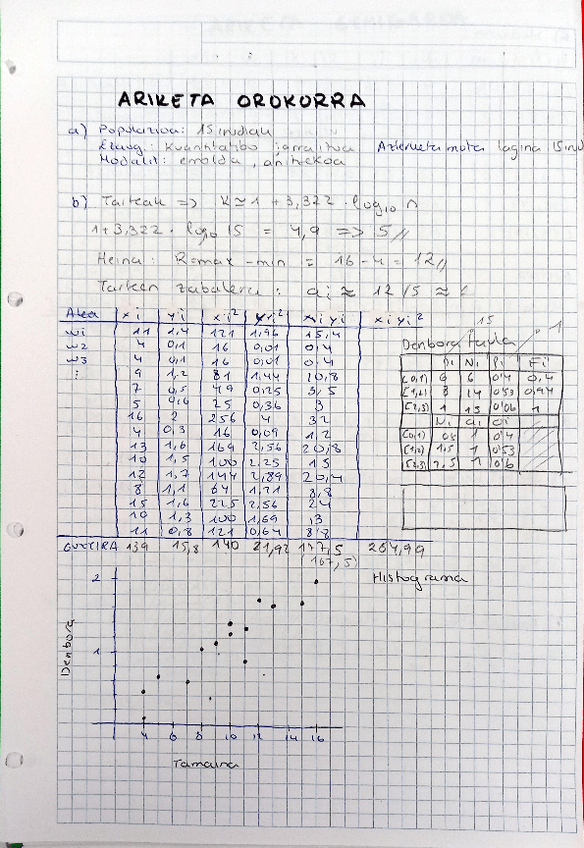 ARIKETA OROKORRA
a) Populazioa: 15 irudiau
Ezaug.: Kuantitatibo jarraitua Azterketa mota lagina 15 irud
Modalit: emolda, anitzekoa
b) Taiteau => K ≈ 1 + 3,322 · log10 n
1 + 3,322 · log10 15 = 4,9 => 5 //
Heina: R = max - min = 16 - 4 = 12 //
Tarteen zabalera: ai ≈ 12/5 ≈
Alea xi yi xi² yi² xi yi xi yi²
w1 11 1,4 121 1,96 15,4
w2 4 0,1 16 0,01 0,4
w3 4 0,1 16 0,01 0.4
⋮ 9 1,2 81 1,44 10,8
7 0,5 49 0,25 3,5
5 0,6 25 0,36 3
16 2 256 4 32
4 0,3 16 0,09 1,2
13 1,6 169 2,56 20,8
10 1,5 100 2,25 15
12 1,7 144 2,89 20,4
8 1,1 64 1,21 8,8
15 1,6 225 2,56 24
10 1,3 100 1,69 13
11 0,8 121 0,64 8'8
GUZTIRA 139 15,8 140 21,92 177,5 264,99
167,5)
15
1
Denbora taula
ni Ni fi Fi
[0,1) 6 6 0'4 0,4
[1,2) 8 14 0'53 0,94
[2,3) 1 15 0'06 1
ai
[0,1) 1 0'4
[1,2) 1,5 1 0'53
[2,3) 2,5 1 0'6
Histograma
Denbora
2
1
4 6 8 10 12 14 16
Tamaina